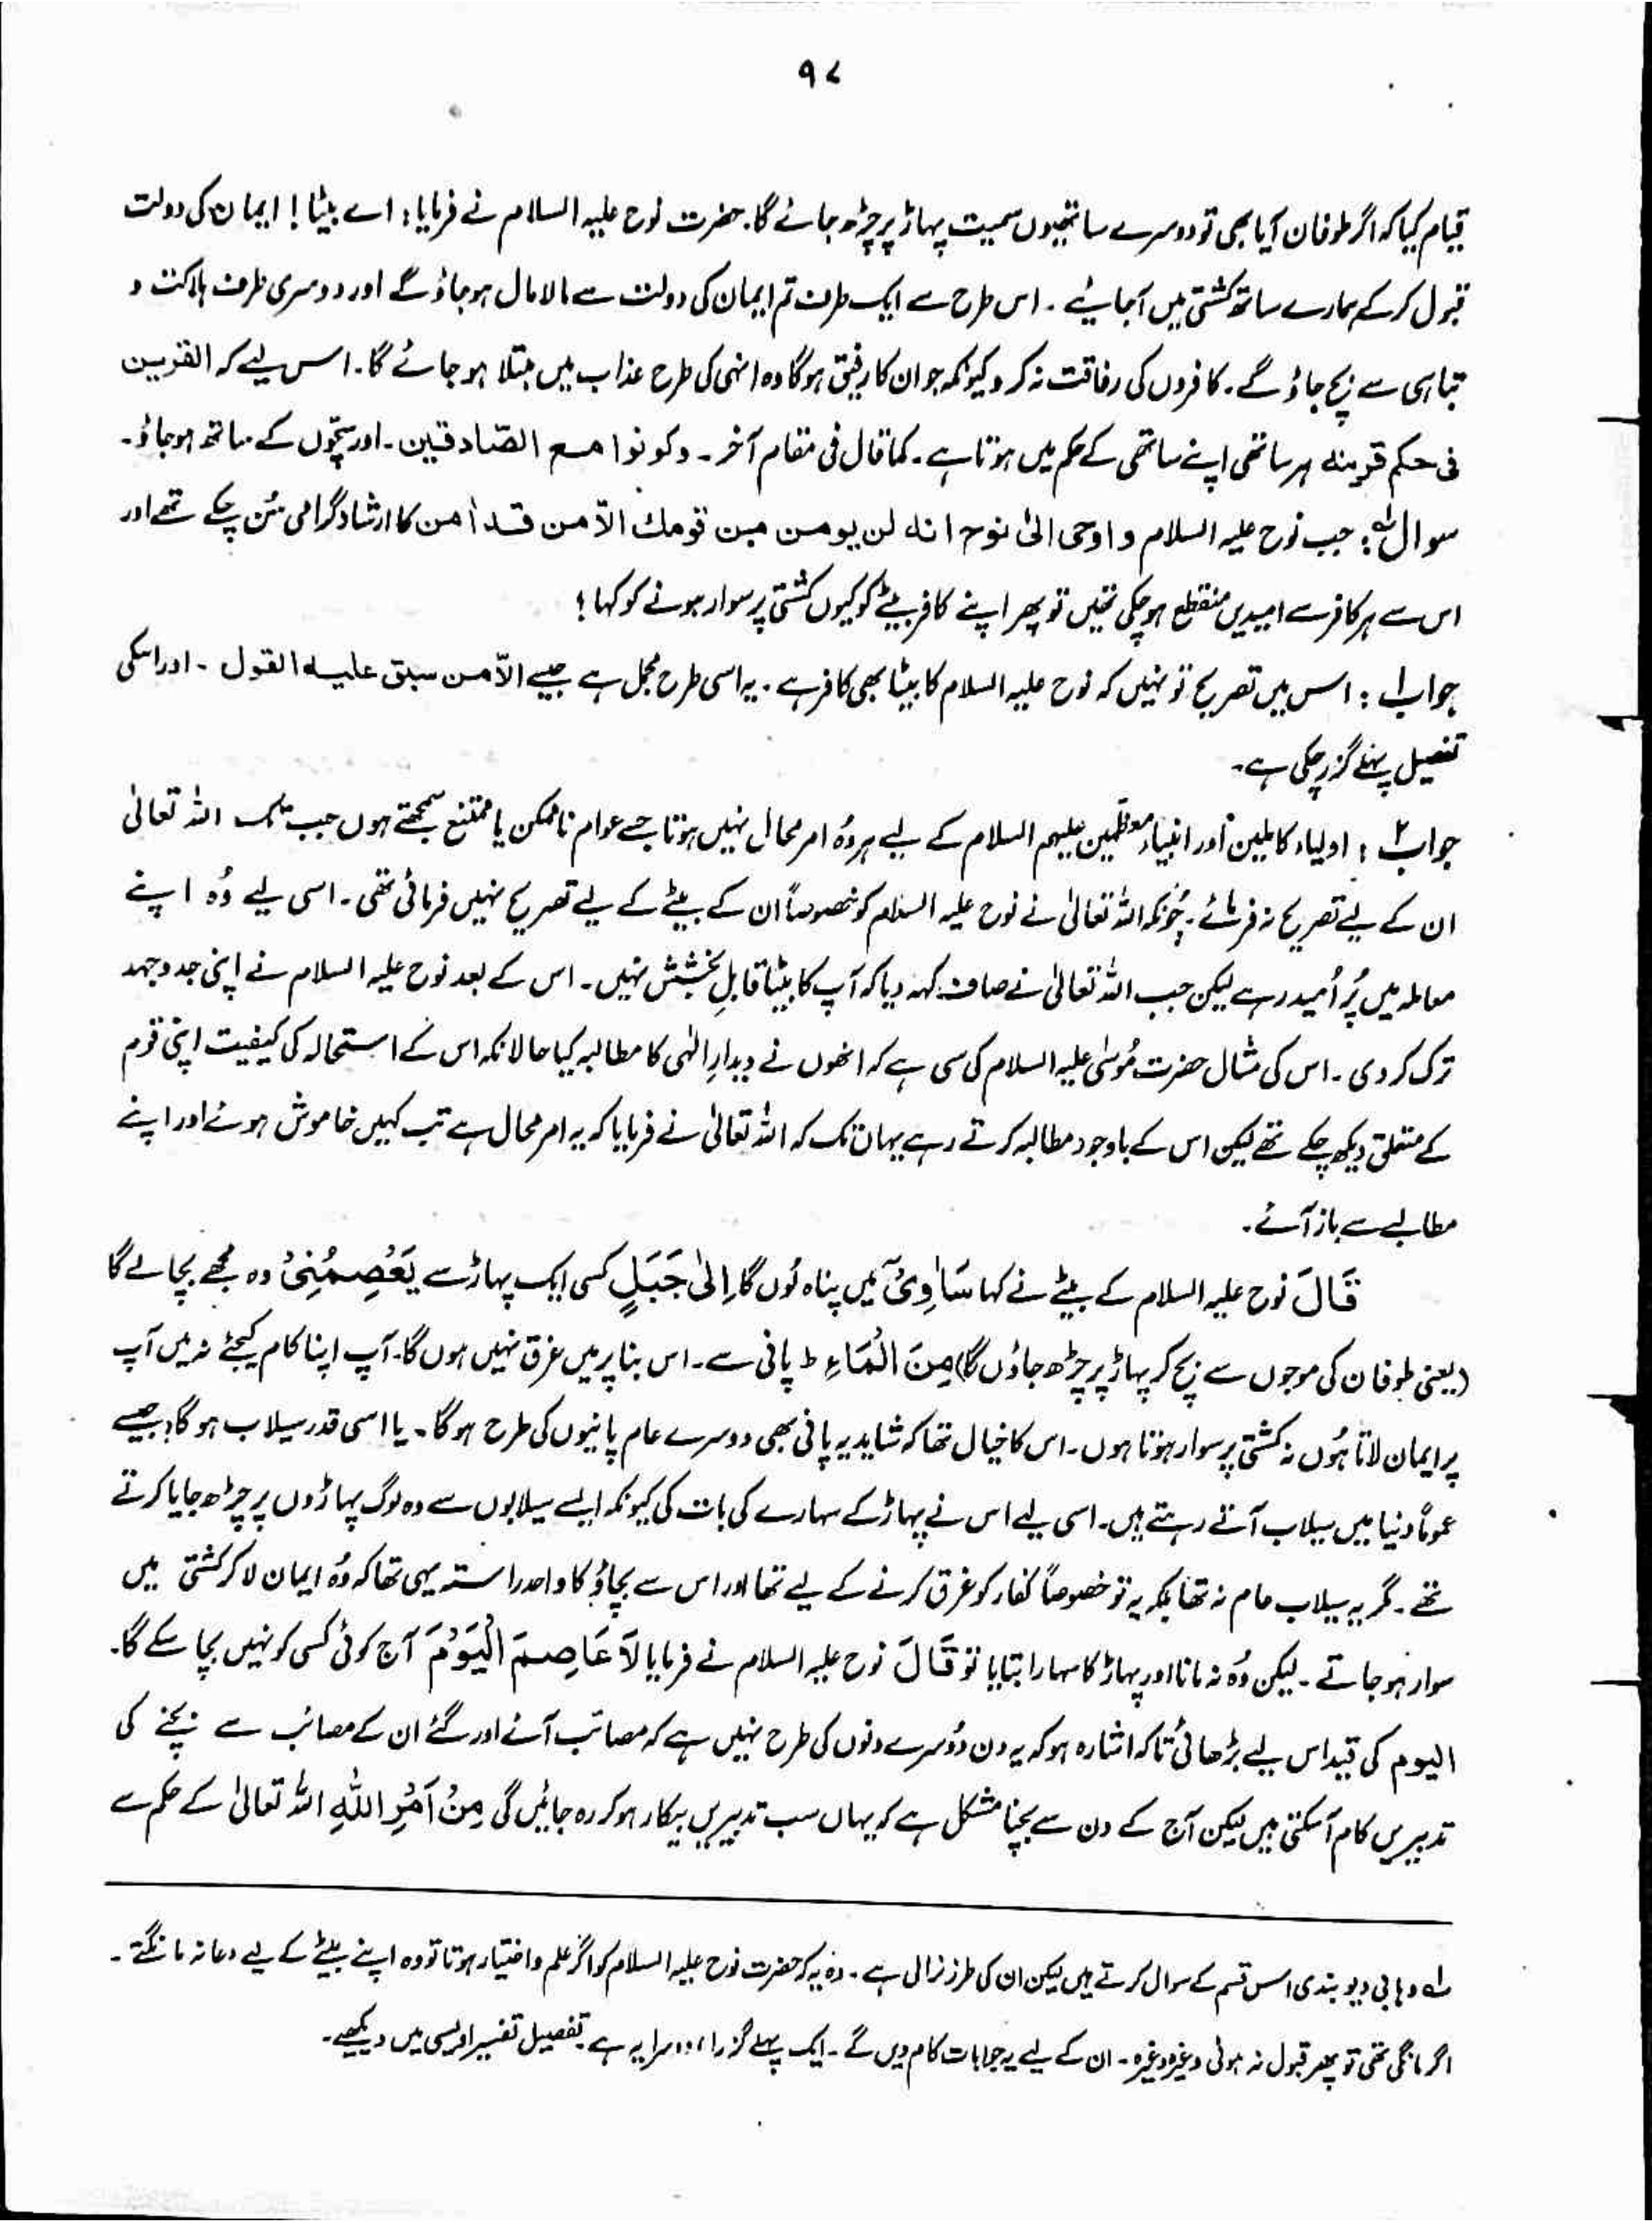 ۹۷
قیام کیا کہ اگر طوفان آیا بھی تو دوسرے ساتھیوں سمیت پہاڑ پر چڑھ جائے گا۔ حضرت نوح علیہ السلام نے فرمایا: اے بیٹا! ایمان کی دولت
قبول کر کے ہمارے ساتھ کشتی میں آ جائیے۔ اس طرح سے ایک طرف تم ایمان کی دولت سے مالا مال ہو جاؤ گے اور دوسری طرف ہلاکت و
تباہی سے بچ جاؤ گے۔ کافروں کی رفاقت نہ کرو کیونکہ جو ان کا رفیق ہو گا وہ انہی کی طرح عذاب میں مبتلا ہو جائے گا۔ اس لیے کہ القرین
فی حکم قرینہ ہر ساتھی اپنے ساتھی کے حکم میں ہوتا ہے۔ کما قال فی مقام آخر۔ وکونوا مع الصّادقین۔ اور سچّوں کے ساتھ ہو جاؤ۔
سوال لہ: جب نوح علیہ السلام و اوحی الیٰ نوح انہ لن یومن من قومك الاّ من قد اٰمن کا ارشاد گرامی سُن چکے تھے اور
اس سے ہر کافر سے امیدیں منقطع ہو چکی تھیں تو پھر اپنے کافر بیٹے کو کیوں کشتی پر سوار ہونے کو کہا؟
جواب ۱: اس میں تصریح تو نہیں کہ نوح علیہ السلام کا بیٹا بھی کافر ہے۔ یہ اسی طرح مجمل ہے جیسے الاّ من سبق علیہ القول۔ اور اسکی
تفصیل پہلے گزر چکی ہے۔
جواب ۲: اولیاء کاملین اور انبیاء معظّمین علیہم السلام کے لیے ہر وُہ امر محال نہیں ہوتا جسے عوام ناممکن یا ممتنع سمجھتے ہوں جب تک اللہ تعالیٰ
ان کے لیے تصریح نہ فرمائے۔ چُونکہ اللہ تعالیٰ نے نوح علیہ السلام کو خصوصاً ان کے بیٹے کے لیے تصریح نہیں فرمائی تھی۔ اسی لیے وُہ اپنے
معاملہ میں پُر اُمید رہے لیکن جب اللہ تعالیٰ نے صاف کہہ دیا کہ آپ کا بیٹا قابلِ بخشش نہیں۔ اس کے بعد نوح علیہ السلام نے اپنی جد و جہد
ترک کر دی۔ اس کی مثال حضرت مُوسٰی علیہ السلام کی سی ہے کہ انھوں نے دیدارِ الٰہی کا مطالبہ کیا حالانکہ اس کے استحالہ کی کیفیت اپنی قوم
کے متعلق دیکھ چکے تھے لیکن اس کے باوجود مطالبہ کرتے رہے یہاں تک کہ اللہ تعالیٰ نے فرمایا کہ یہ امر محال ہے تب کہیں خاموش ہوئے اور اپنے
مطالبے سے باز آئے۔
قَالَ نوح علیہ السلام کے بیٹے نے کہا سَاٰوِیْٓ میں پناہ لُوں گا اِلیٰ جَبَلٍ کسی ایک پہاڑ سے یَعْصِمُنِیْ وہ مجھے بچا لے گا
(یعنی طوفان کی موجوں سے بچ کر پہاڑ پر چڑھ جاؤں گا) مِنَ الْمَاءِ ط پانی سے۔ اس بنا پر میں غرق نہیں ہوں گا۔ آپ اپنا کام کیجئے نہ میں آپ
پر ایمان لاتا ہُوں نہ کشتی پر سوار ہوتا ہوں۔ اس کا خیال تھا کہ شاید یہ پانی بھی دوسرے عام پانیوں کی طرح ہو گا۔ یا اسی قدر سیلاب ہو گا جیسے
عموماً دنیا میں سیلاب آتے رہتے ہیں۔ اسی لیے اس نے پہاڑ کے سہارے کی بات کی کیونکہ ایسے سیلابوں سے وہ لوگ پہاڑوں پر چڑھ جایا کرتے
تھے۔ مگر یہ سیلاب عام نہ تھا بلکہ یہ تو خصوصاً کفار کو غرق کرنے کے لیے تھا اور اس سے بچاؤ کا واحد راستہ یہی تھا کہ وُہ ایمان لا کر کشتی میں
سوار ہو جاتے۔ لیکن وُہ نہ مانا اور پہاڑ کا سہارا بتایا تو قَالَ نوح علیہ السلام نے فرمایا لَا عَاصِمَ الْیَوْمَ آج کوئی کسی کو نہیں بچا سکے گا۔
الیوم کی قید اس لیے بڑھائی تاکہ اشارہ ہو کہ یہ دن دُوسرے دنوں کی طرح نہیں ہے کہ مصائب آئے اور گئے ان کے مصائب سے بچنے کی
تدبیریں کام آ سکتی ہیں لیکن آج کے دن سے بچنا مشکل ہے کہ یہاں سب تدبیریں بیکار ہو کر رہ جائیں گی مِنْ اَمْرِ اللّٰہِ اللہ تعالیٰ کے حکم سے
لہ وہابی دیوبندی اس قسم کے سوال کرتے ہیں لیکن ان کی طرز نرالی ہے۔ وہ یہ کہ حضرت نوح علیہ السلام کو اگر علم و اختیار ہوتا تو وہ اپنے بیٹے کے لیے دعا نہ مانگتے۔
اگر مانگی تھی تو پھر قبول نہ ہوئی وغیرہ وغیرہ۔ ان کے لیے یہ جوابات کام دیں گے۔ ایک پہلے گزرا، دوسرا یہ ہے تفصیل تفسیر اویسی میں دیکھیے۔